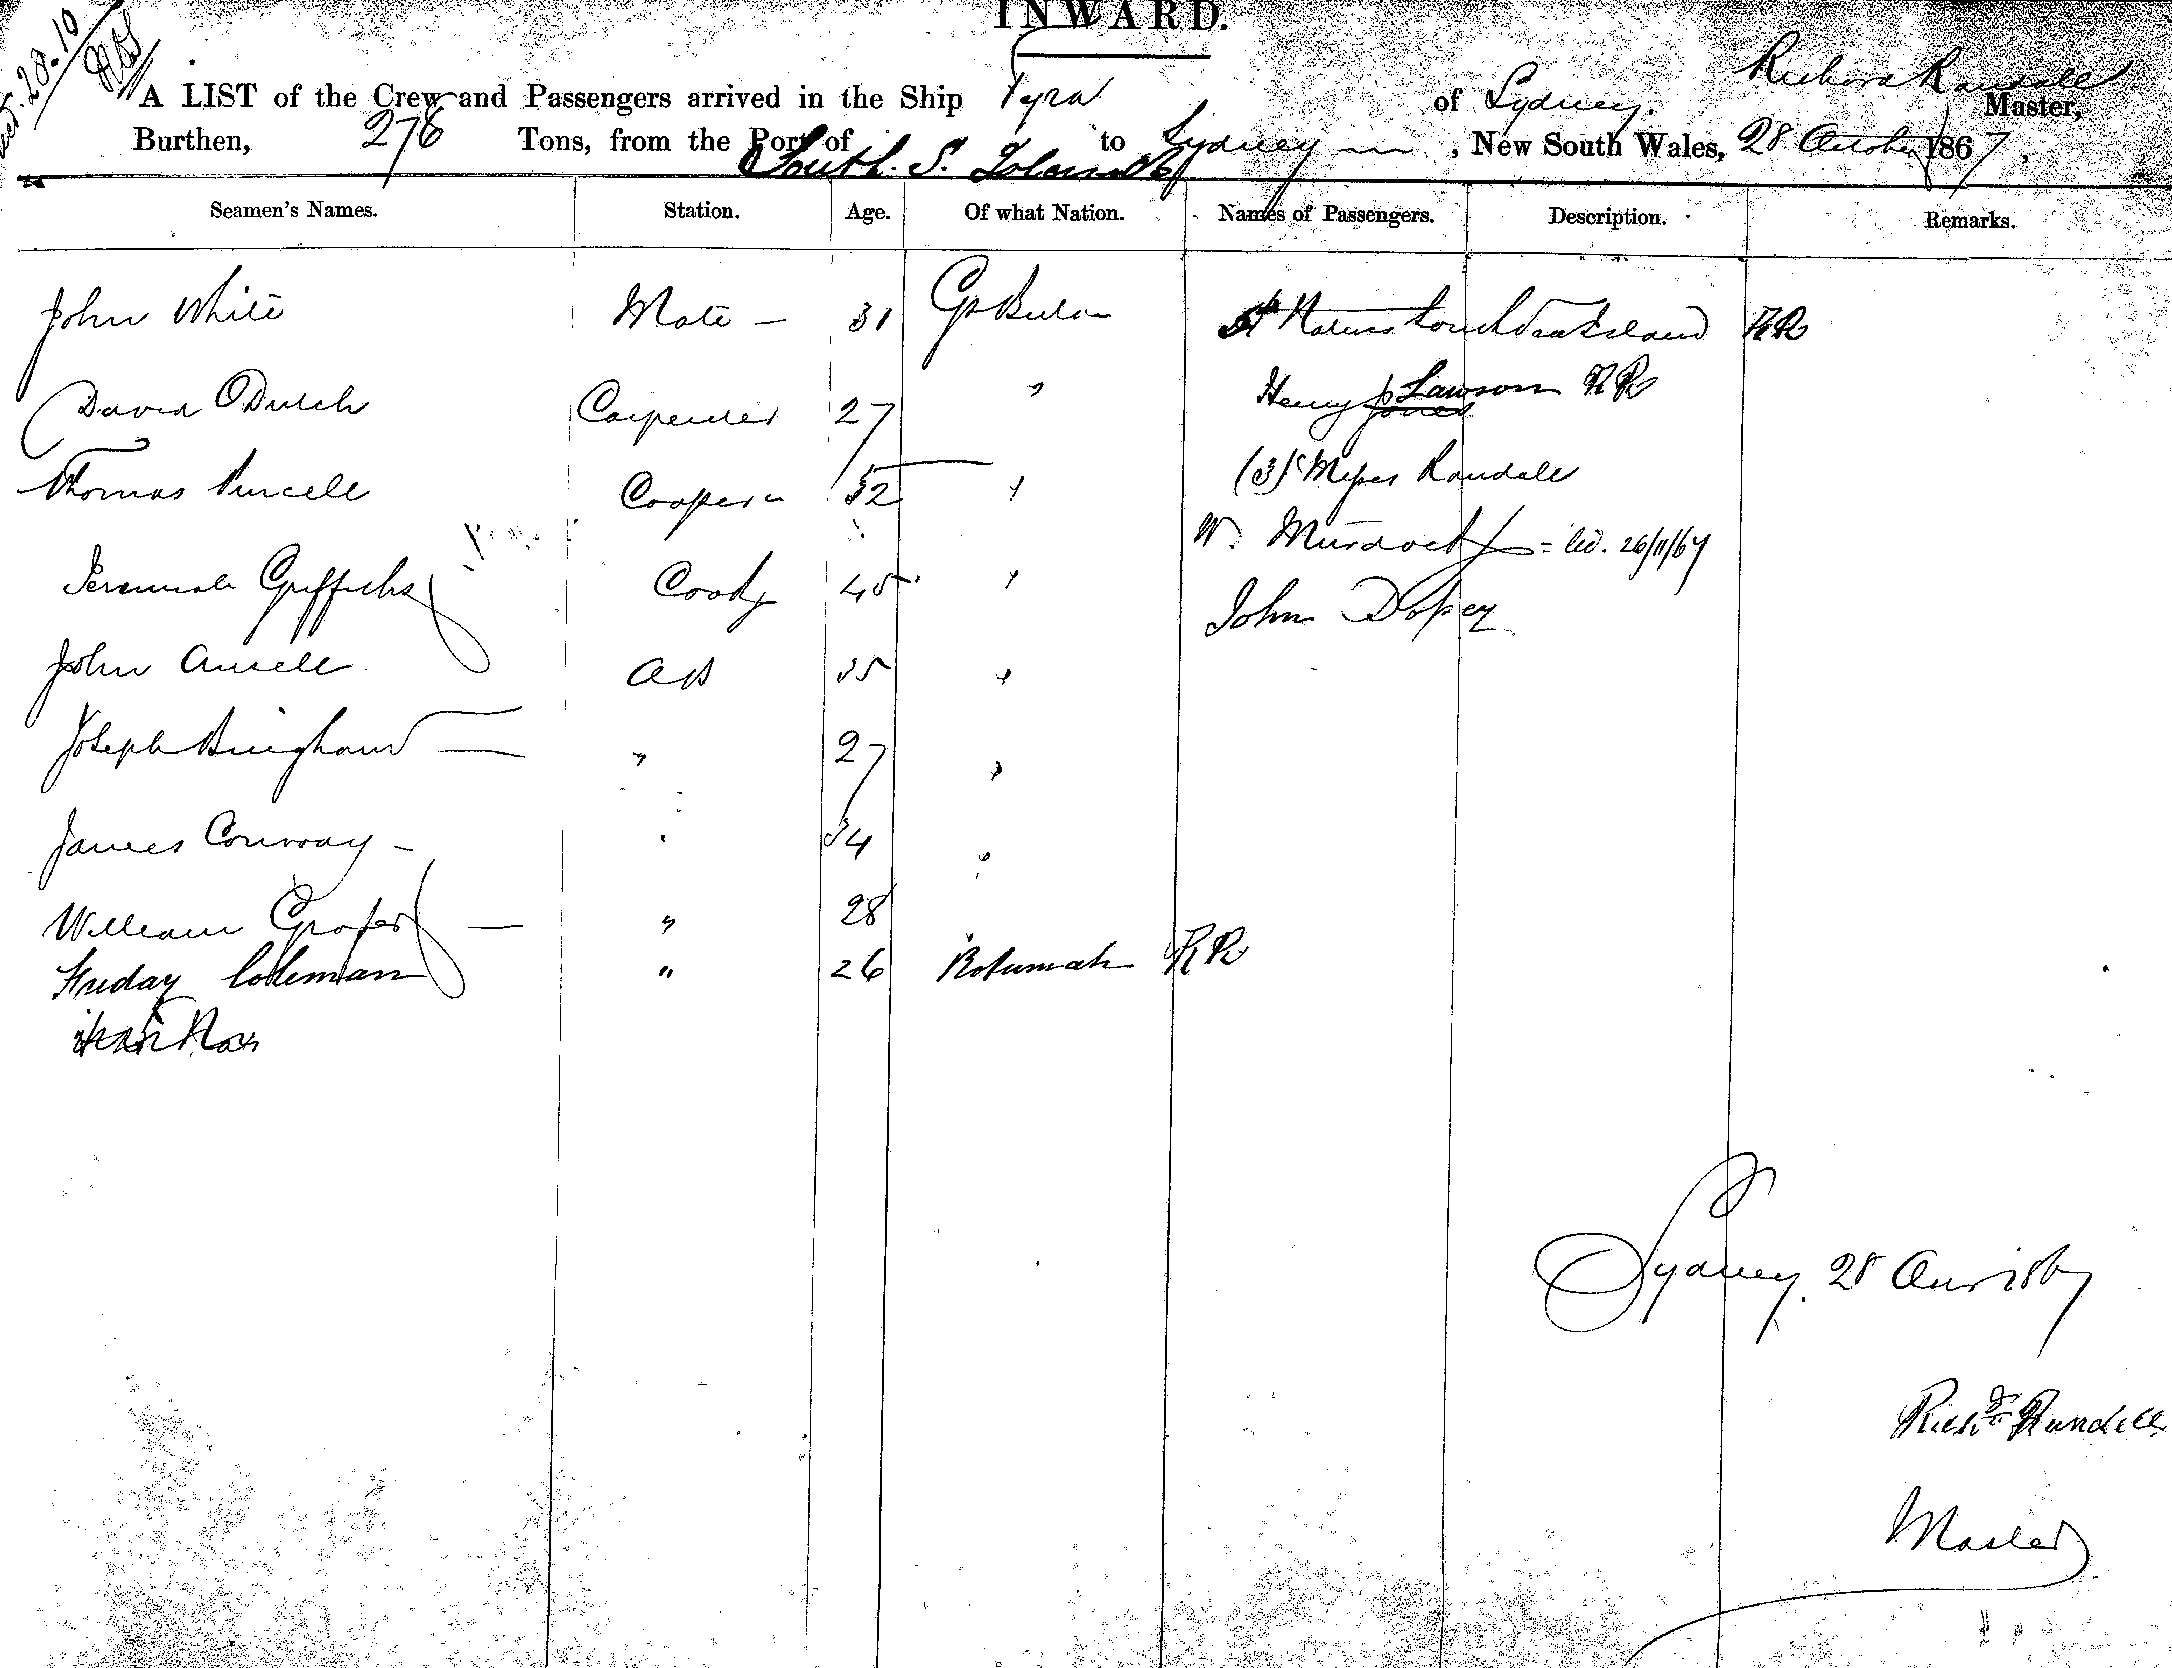 INWARD.
28.10
A LIST of the Crew and Passengers arrived in the Ship Tyra of Sydney. Richard Randall Master,
Burthen, 276 Tons, from the Port of South S. Islands to Sydney , New South Wales, 28 October 1867,
Seamen's Names. Station. Age. Of what Nation. Names of Passengers. Description. Remarks.
John White Mate — 31 Gt Britain South Sea Island RR
David Carpenter 27 " Henry Lawson RR
Jones
Thomas Purcell Cooper 32 " (3) Misses Randall
W. Murdock = 26/11/67
Jeremiah Griffiths Cook 45 "
John
John Ansell AB 35 "
Joseph Bingham — " 27 "
James Conway - " 34 "
William — " 28
Friday Coleman " 26 Rotumah RR
Sydney. 28 1867
Richd Randall
Master